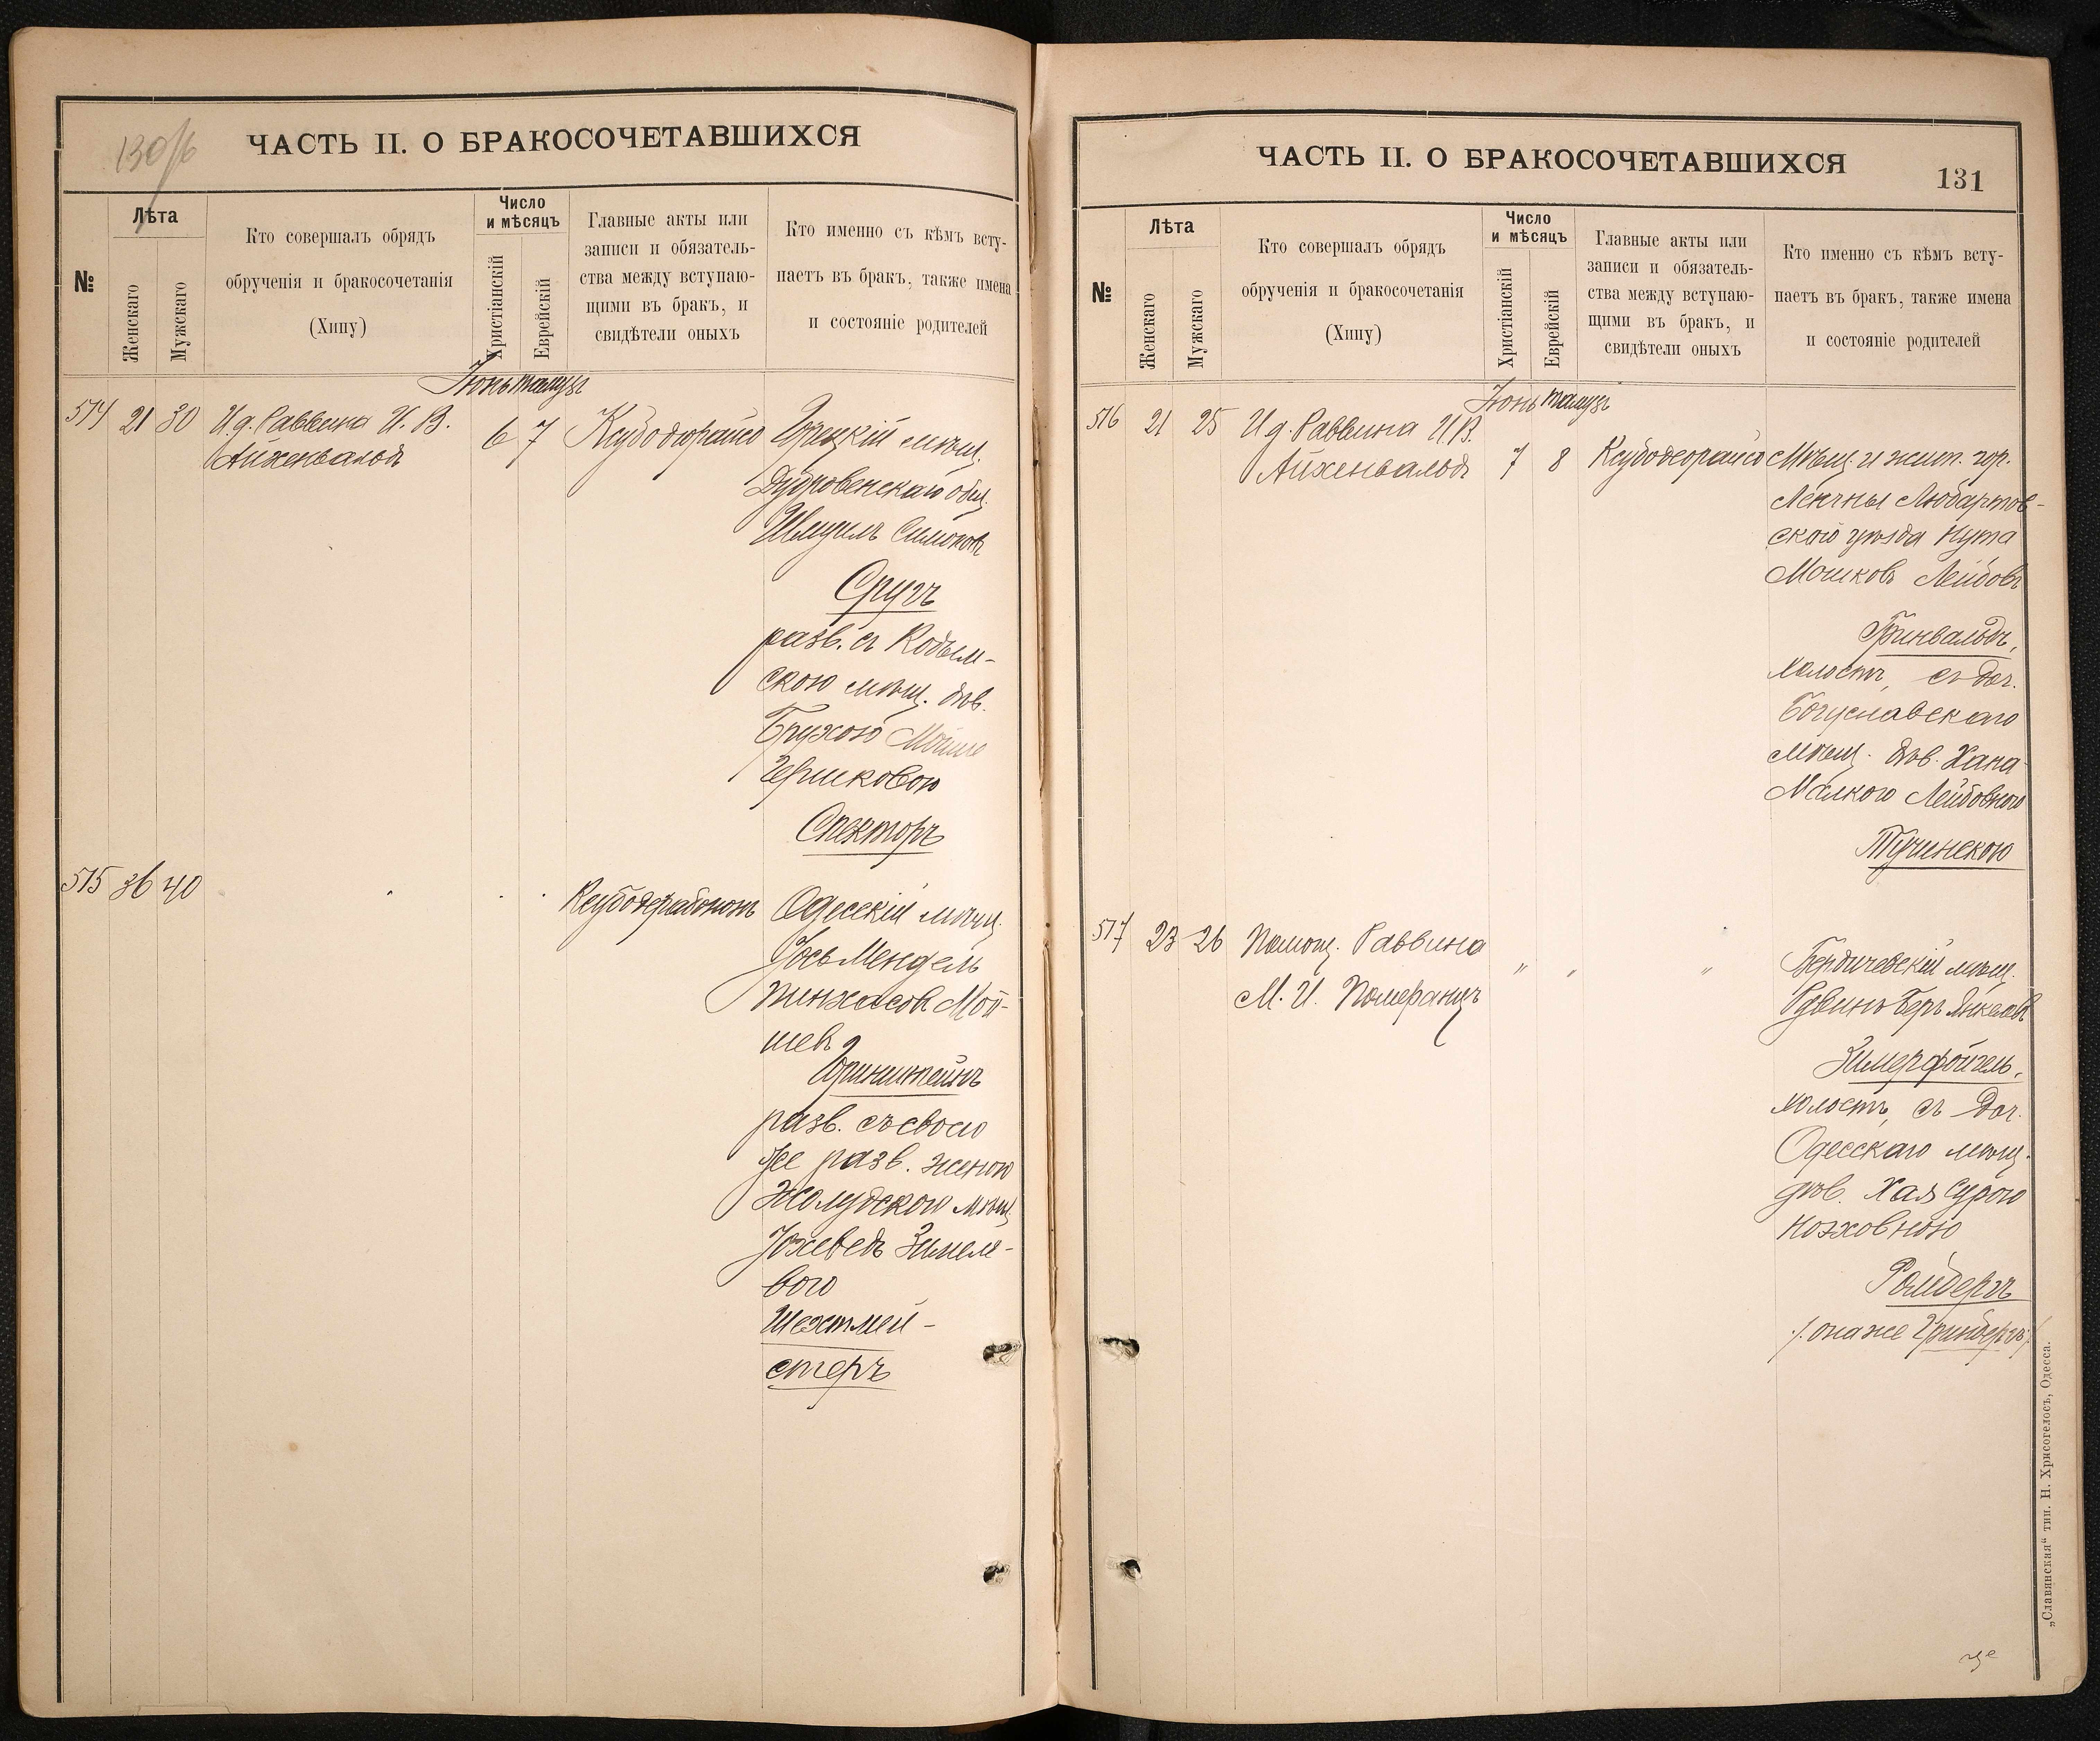 130/б
ЧАСТЬ II. О БРАКОСОЧЕТАВШИХСЯ
№
Лѣта
Женскаго
Мужскаго
Кто совершалъ обрядъ
обрученія и бракосочетанія
(Хипу)
Число
и мѣсяцъ
Христіанскій
Еврейскій
Главные акты или
записи и обязатель-
ства между вступаю-
щими въ бракъ, и
свидѣтели оныхъ
Кто именно съ кѣмъ всту-
паетъ въ бракъ, также имена
и состояніе родителей
Іюнь тамузъ
514 21 30 И д. Раввина И. В.
Айхенвальдъ
6 7
Ксубодеорайсо
Горецкій мѣщ.
Дубровенскаго общ.
Шмуилъ Симоновъ
Спугъ
разв. съ Кодым-
скою мѣщ. дѣв.
Брухою
Гершковою
Спекторъ
515 36 40
Одесскій мѣщ.
Іось Мендель
Пинхасовъ Мой-
шевъ
Гринштейнъ
разв. съ своею
же разв. женою
Жолудскою мѣщ.
Іохеведъ Зимеле-
вою
Шехтмей-
стеръ
ЧАСТЬ II. О БРАКОСОЧЕТАВШИХСЯ
131
№
Лѣта
Женскаго
Мужскаго
Кто совершалъ обрядъ
обрученія и бракосочетанія
(Хипу)
Число
и мѣсяцъ
Христіанскій
Еврейскій
Главные акты или
записи и обязатель-
ства между вступаю-
щими въ бракъ, и
свидѣтели оныхъ
Кто именно съ кѣмъ всту-
паетъ въ бракъ, также имена
и состояніе родителей
Іюнь тамузъ
516 21 25 И д. Раввина И. В.
Айхенвальдъ
7 8
Ксубодеорайсо
Мѣщ. и жит. гор.
Ленчны Любартов-
ского уѣзда Нута
Мошковъ Лейбовъ
Гринвальдъ,
холостъ, съ доч.
Богуславскаго
мѣщ. дѣв. Хана
Малкою Лейбовною
Тучинскою
517 23 26 Помощ. Раввина
М. И. Померанцъ
" " "
Бердичевскій мѣщ.
Беръ Янкелевъ
Зимерфойгель,
холостъ, съ доч.
Одесскаго мѣщ.
дѣв. Хая Сурою
Нозховною
Ройбергъ
/. она же Гринбергъ/
„Славянская" тип. Н. Хрисогелосъ, Одесса.